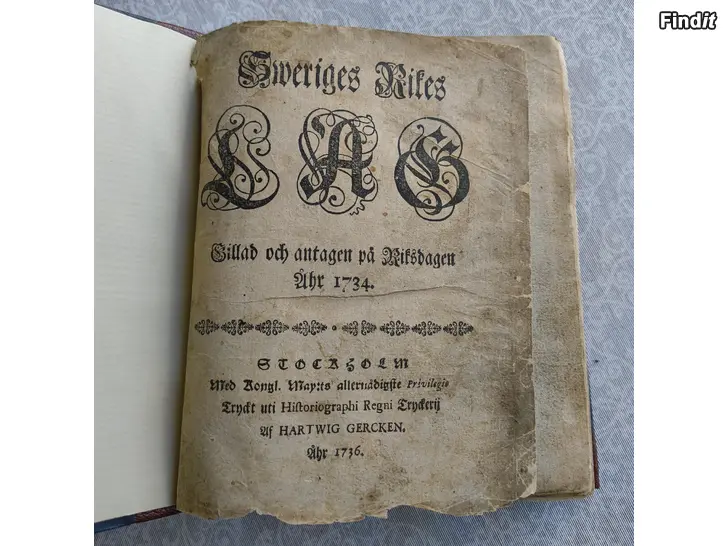 Findit
Sweriges Rikes
LAG
Gillad och antagen på Riksdagen
Åhr 1734.
STOCKHOLM
Med Kongl. May:ts allernådigste Privilegio
Tryckt uti Historiographi Regni Tryckerij
Af HARTWIG GERCKEN.
Åhr 1736.